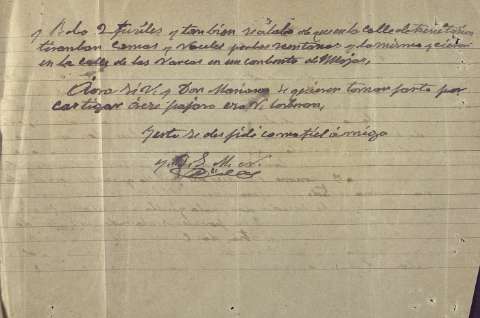 y Robo 2 fusiles y tambien se alabo de que en la calle de
tiraban camas y vaules por las ventanas y lo mismo ycieron
en la calle de las Varcas en un conbento de Monjas,
Aora si V. y Don Mariano se quieren tomar parte por
castigar á ese pajaro era V. lo
y esto se despide como fiel amigo
y S. S. M. V.